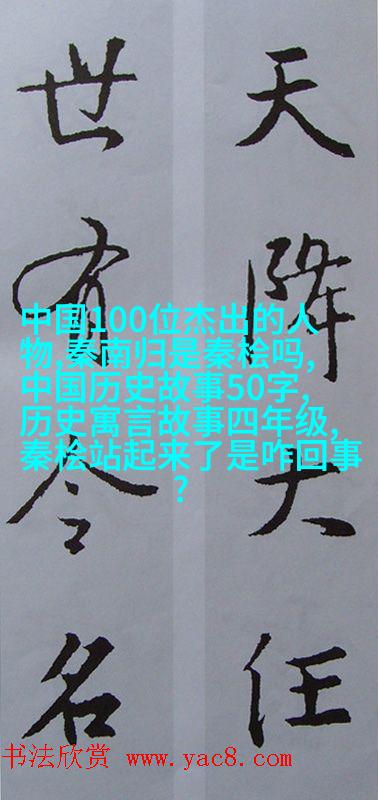 天降大任
世有令名
中国100位杰出的人
物,秦南归是秦桧吗,
中国历史故事50字,
历史寓言故事四年级,
秦桧站起来了是咋回事
?
书法欣赏 www.yac8.com